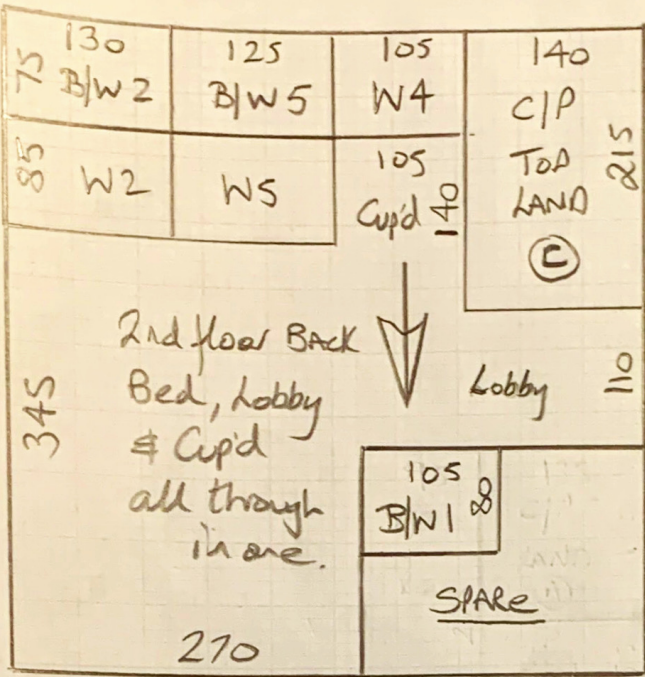 130
75
B/W 2
125
B/W 5
105
W4
140
C/P
TOP
LAND
C
215
85
W2
W5
105
Cup'd
140
2nd floor BACK
Bed, Lobby
& Cup'd
all through
in one.
345
Lobby
110
105
B/W1
80
SPARE
270